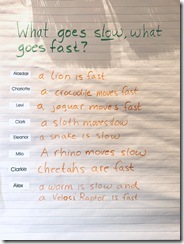 What goes slow, what
goes fast?
Alasdair a lion is fast
Charlotte a crocodile moves fast
Levi a jaguar moves fast
Clark a sloth moves slow
Eleanor a snake is slow
Milo A rhino moves slow
Clarkie cheetahs are fast
Alex a worm is slow and
a Velosi Raptor is fast